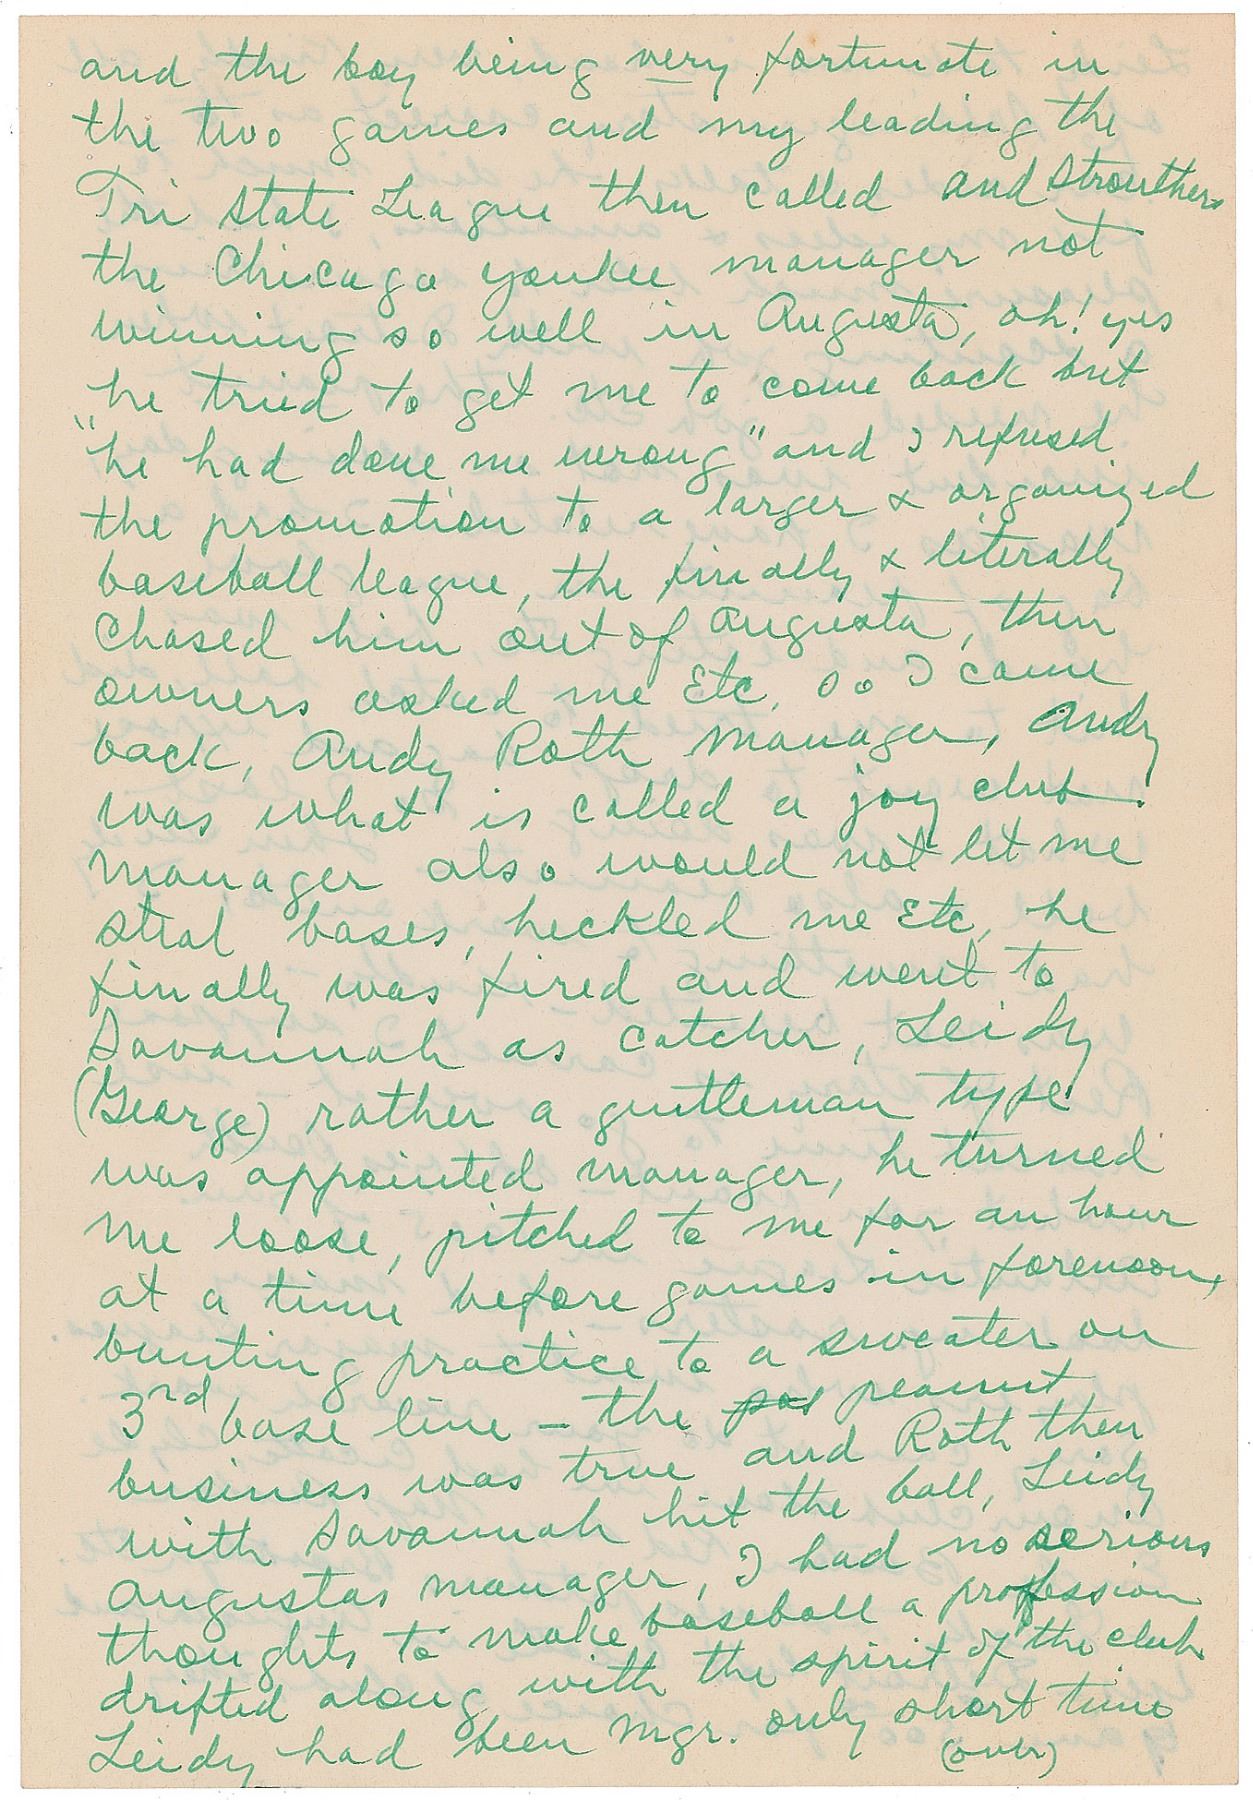 and the boy being very fortunate in
the two games and my leading the
Tri State League then called and Strouthers
the Chicago yankee manager not
winning so well in Augusta, oh! yes
he tried to get me to come back but
"he had done me wrong" and I refused
the promotion to a larger & organized
baseball league, the finally & literally
Chased him out of Augusta, then
owners asked me Etc. so I came
back, Andy Roth manager, Andy
was what is called a joy club
manager also would not let me
steal bases, heckled me Etc, he
finally was fired and went to
Savannah as catcher, Leidy
(George) rather a gentleman type
was appointed manager, he turned
me loose, pitched to me for an hour
at a time before games in forenoon,
bunting practice to a sweater on
3rd base line - the peanut
business was true and Roth then
with Savannah hit the ball, Leidy
Augustas manager, I had no serious
thoughts to make baseball a profession
drifted along with the spirit of the club
Leidy had been Mgr. only short time
(over)